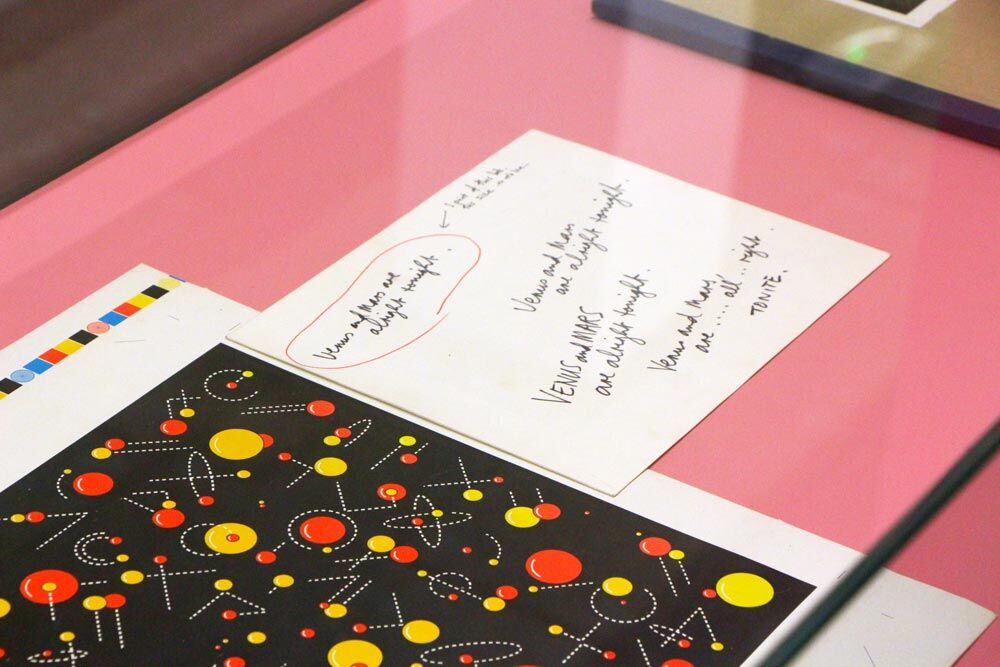 Venus and Mars are
alright tonight.
Venus and Mars
are alright tonight.
VENUS and MARS
are alright tonight.
Venus and Mars
are ..... all .. right
TONITE.